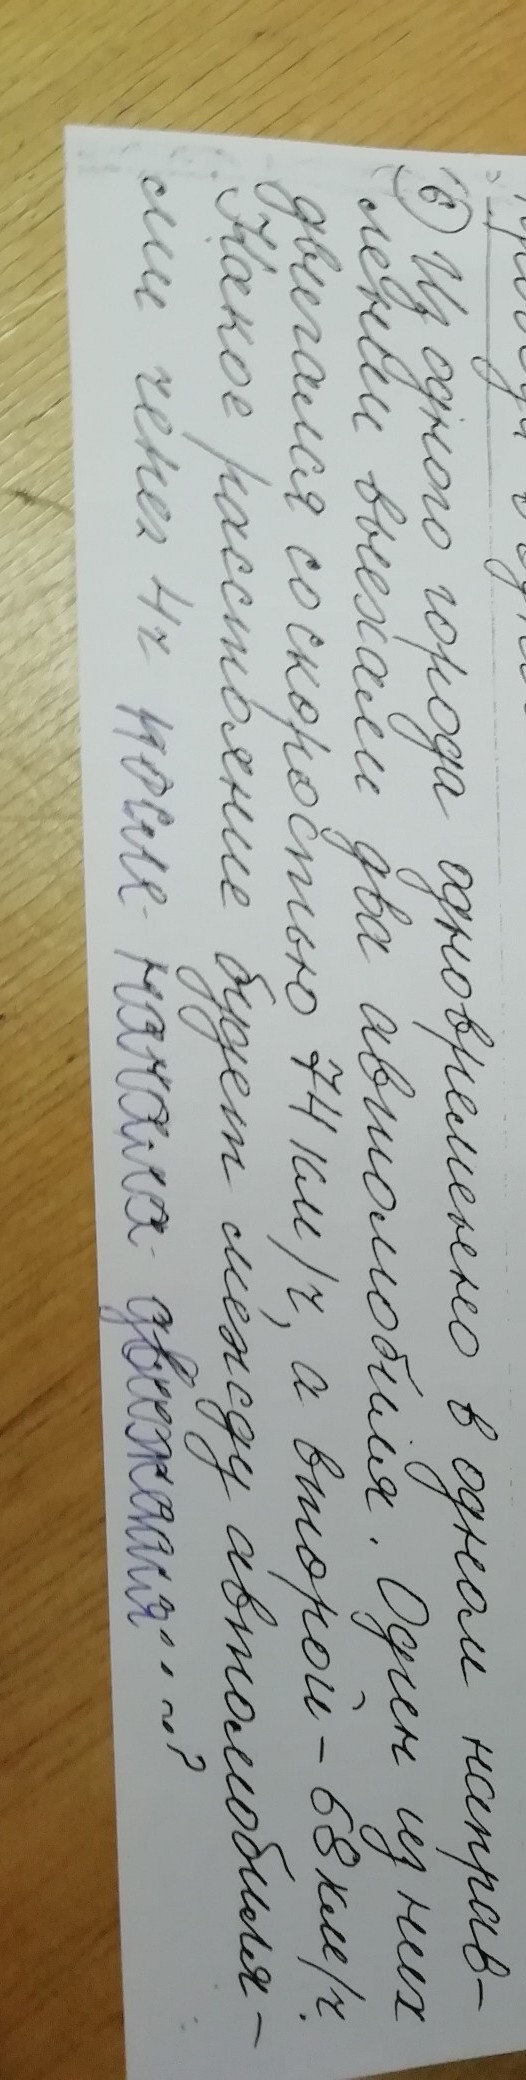 6 Из одного города одновременно в одном направ-
лении выехали два автомобиля. Один из них
двигался со скоростью 74 км/ч, а второй - 68 км/ч.
Какое расстояние будет между автомобиля-
ми через 4ч после начала движения...?